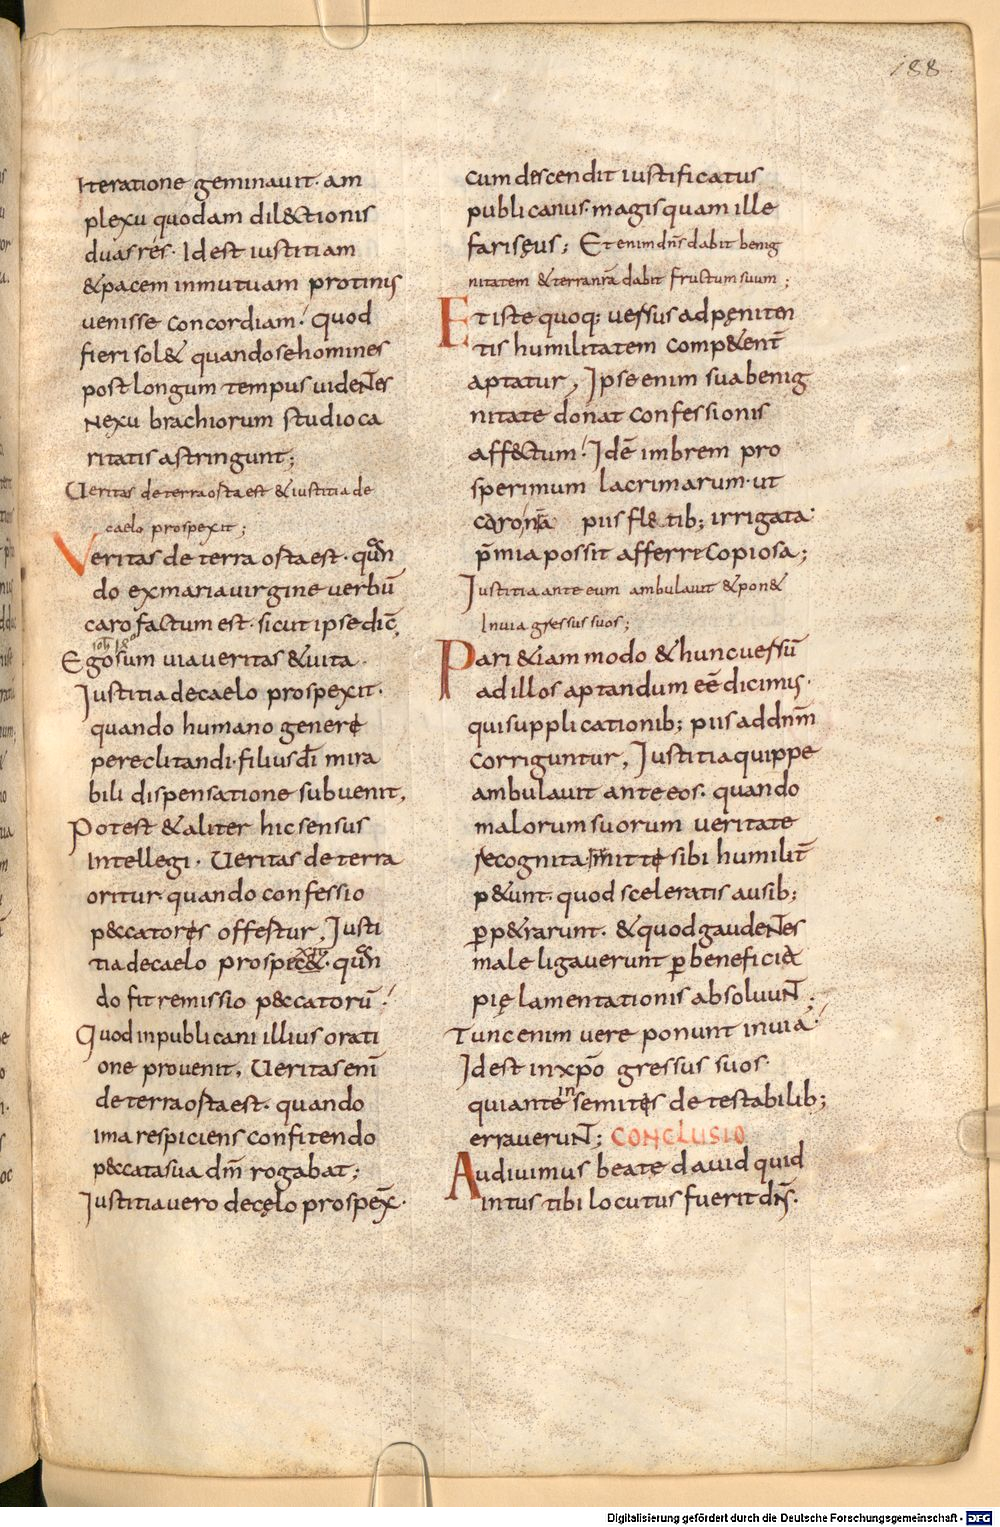 188
Iteratione geminauit· am
plexu quodam dil&ctionis
duas res· Id est iustitiam
& pacem in mutuam protinus
uenisse concordiam· quod
fieri sol& quando se homines
post longum tempus uidentes
nexu brachiorum studio ca
ritatis astringunt;
Ueritas de terra orta est & iustitia de
caelo prospexit;
Ueritas de terra orta est· quan
do ex maria uirgine uerbū
caro factum est· sicut ipse dic̄
Ego sum uia ueritas & uita·
Iustitia de caelo prospexit·
quando humano genere
pereclitandi· filius dī mira
bili dispensatione subuenit,
Potest & aliter hic sensus
intellegi· Ueritas de terra
oritur· quando confessio
peccatores offertur, Iusti
tia de caelo prospic&· quan
do fit remissio peccatorū·
Quod in publicani illius orati
one prouenit, Ueritas enī
de terra orta est· quando
ima respiciens confitendo
peccata sua dn̄m rogabat;
Iustitia uero de cęlo prospex̄·
cum descendit iustificatus
publicanus· magis quam ille
farisęus; Etenim dn̄s dabit benig
nitatem & terra nr̄a dabit fructum suum;
Et iste quoq; uersus ad pęniten
tis humilitatem comp&ent̄
aptatur, Ipse enim sua benig
nitate donat confessionis
aff&ctum· Idē imbrem pro
sperimum lacrimarum· ut
caro nr̄a piis fl&tib; irrigata
p̄mia possit afferre copiosa;
Iustitia ante eum ambulauit & pon&
in uia gressus suos;
Pari &iam modo & hunc uersū
ad illos aptandum eē dicimus·
qui supplicationib; piis ad dn̄m
corriguntur, Iustitia quippe
ambulauit ante eos· quando
malorum suorum ueritate
recognita mitte sibi humilit̄
p&unt· quod sceleratis ausib;
ꝑp&rarunt· & quod gaudentes
male ligauerunt ꝑ beneficia
pię lamentationis absoluunt;
Tunc enim uere ponunt in uia·
Id est in xp̄o gressus suos·
qui ante in semites detestabilib;
errauerunt; CONCLUSIO
Audiuimus beate dauid quid
intus tibi locutus fuerit dn̄s·
Digitalisierung gefördert durch die Deutsche Forschungsgemeinschaft - DFG